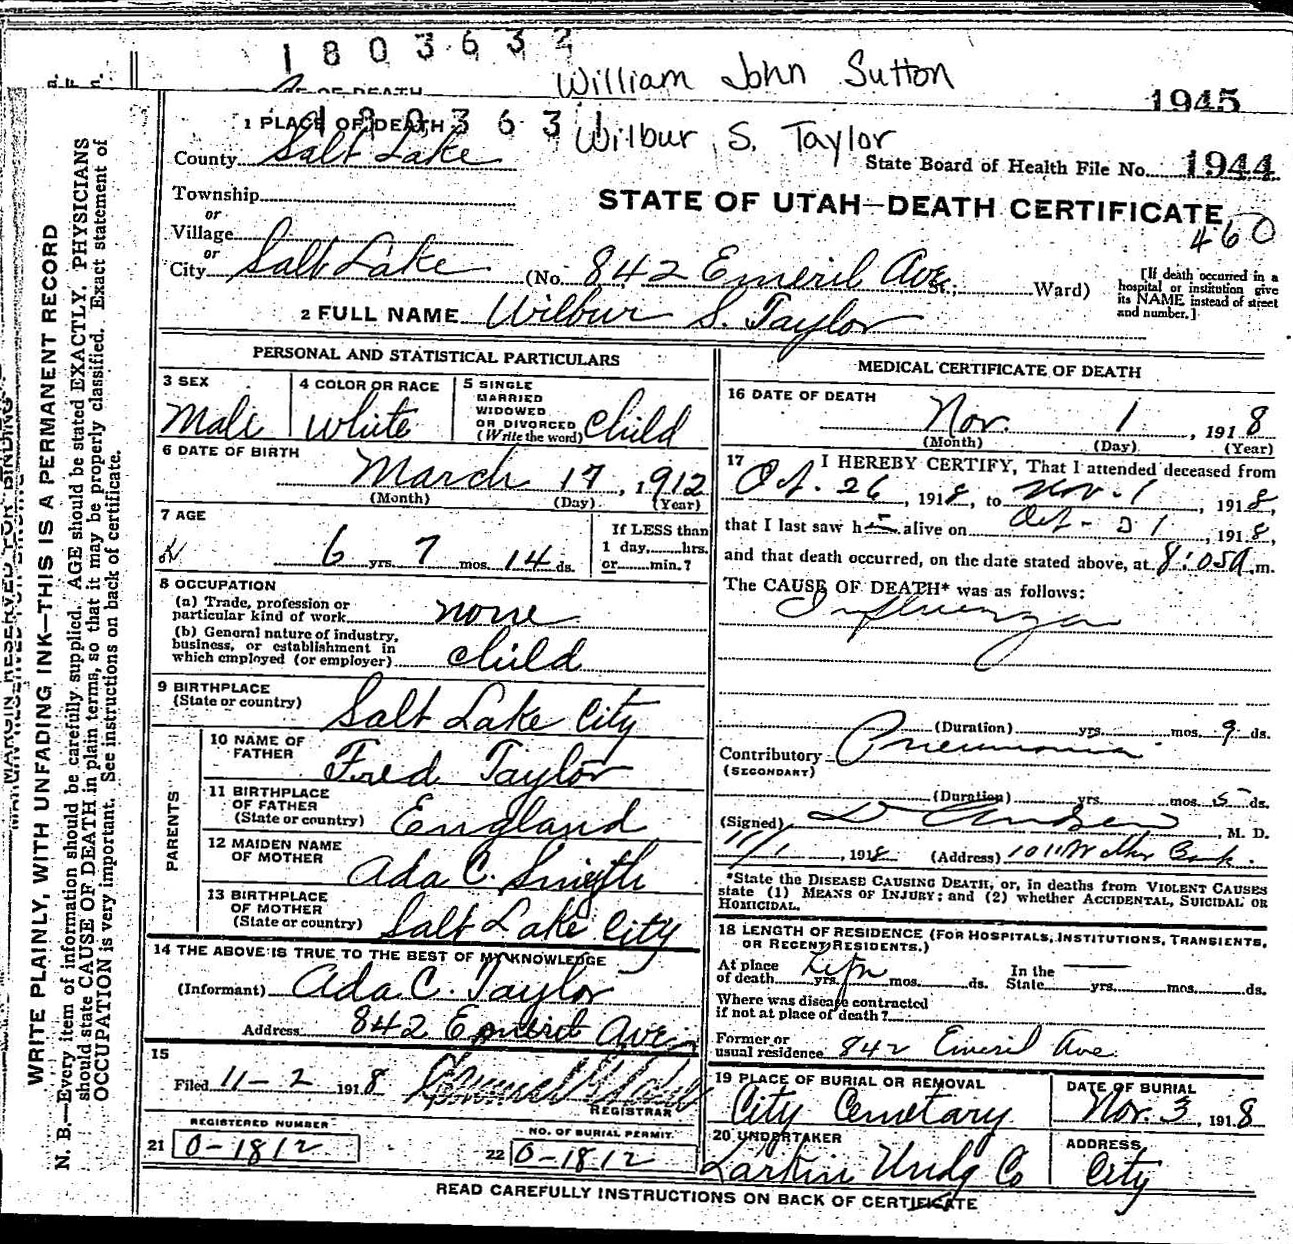 1803632
William John Sutton
OF DEATH
1945
1 PLACE OF DEATH
1803631
Wilbur S. Taylor
County Salt Lake
State Board of Health File No. 1944
Township
or
STATE OF UTAH—DEATH CERTIFICATE
460
Village
or
City Salt Lake (No. 842 Emeril Ave St.; Ward)
[If death occurred in a hospital or institution give its NAME instead of street and number.]
2 FULL NAME Wilbur S. Taylor
PERSONAL AND STATISTICAL PARTICULARS
3 SEX
Male
4 COLOR OR RACE
White
5 SINGLE
MARRIED
WIDOWED
OR DIVORCED
(Write the word) child
6 DATE OF BIRTH
March 17, 1912
(Month) (Day) (Year)
7 AGE
6 yrs. 7 mos. 14 ds.
If LESS than
1 day,......hrs.
or......min.?
8 OCCUPATION
(a) Trade, profession or
particular kind of work none
(b) General nature of industry,
business, or establishment in
which employed (or employer) child
9 BIRTHPLACE
(State or country) Salt Lake City
PARENTS
10 NAME OF
FATHER Fred Taylor
11 BIRTHPLACE
OF FATHER
(State or country) England
12 MAIDEN NAME
OF MOTHER Ada C. Smyth
13 BIRTHPLACE
OF MOTHER
(State or country) Salt Lake City
14 THE ABOVE IS TRUE TO THE BEST OF MY KNOWLEDGE
(Informant) Ada C. Taylor
Address 842 Emeril Ave.
15
Filed 11-2 1918
REGISTRAR
REGISTERED NUMBER
21 0-1812
NO. OF BURIAL PERMIT
22 0-1812
MEDICAL CERTIFICATE OF DEATH
16 DATE OF DEATH
Nov. 1, 1918
(Month) (Day) (Year)
17 I HEREBY CERTIFY, That I attended deceased from
Oct. 26, 1918, to Nov. 1, 1918,
that I last saw h alive on Oct - 31, 1918,
and that death occurred, on the date stated above, at 8:05 a.m.
The CAUSE OF DEATH* was as follows:
Influenza
(Duration) yrs. mos. 9 ds.
Contributory Pneumonia
(SECONDARY)
(Duration) yrs. mos. 5 ds.
(Signed) M. D.
11/1, 1918 (Address) 1011 Walker Bank.
*State the DISEASE CAUSING DEATH, or, in deaths from VIOLENT CAUSES
state (1) MEANS OF INJURY; and (2) whether ACCIDENTAL, SUICIDAL OR
HOMICIDAL.
18 LENGTH OF RESIDENCE (FOR HOSPITALS, INSTITUTIONS, TRANSIENTS,
OR RECENT RESIDENTS.)
At place
of death Life yrs. mos. ds.
In the
State yrs. mos. ds.
Where was disease contracted
if not at place of death?
Former or
usual residence 842 Emeril Ave.
19 PLACE OF BURIAL OR REMOVAL
City Cemetary
DATE OF BURIAL
Nov. 3, 1918
20 UNDERTAKER
Larkin Undg Co
ADDRESS
City
READ CAREFULLY INSTRUCTIONS ON BACK OF CERTIFICATE
MARGIN RESERVED FOR BINDING
WRITE PLAINLY, WITH UNFADING INK—THIS IS A PERMANENT RECORD
N. B.—Every item of information should be carefully supplied. AGE should be stated EXACTLY. PHYSICIANS
should state CAUSE OF DEATH in plain terms, so that it may be properly classified. Exact statement of
OCCUPATION is very important. See instructions on back of certificate.